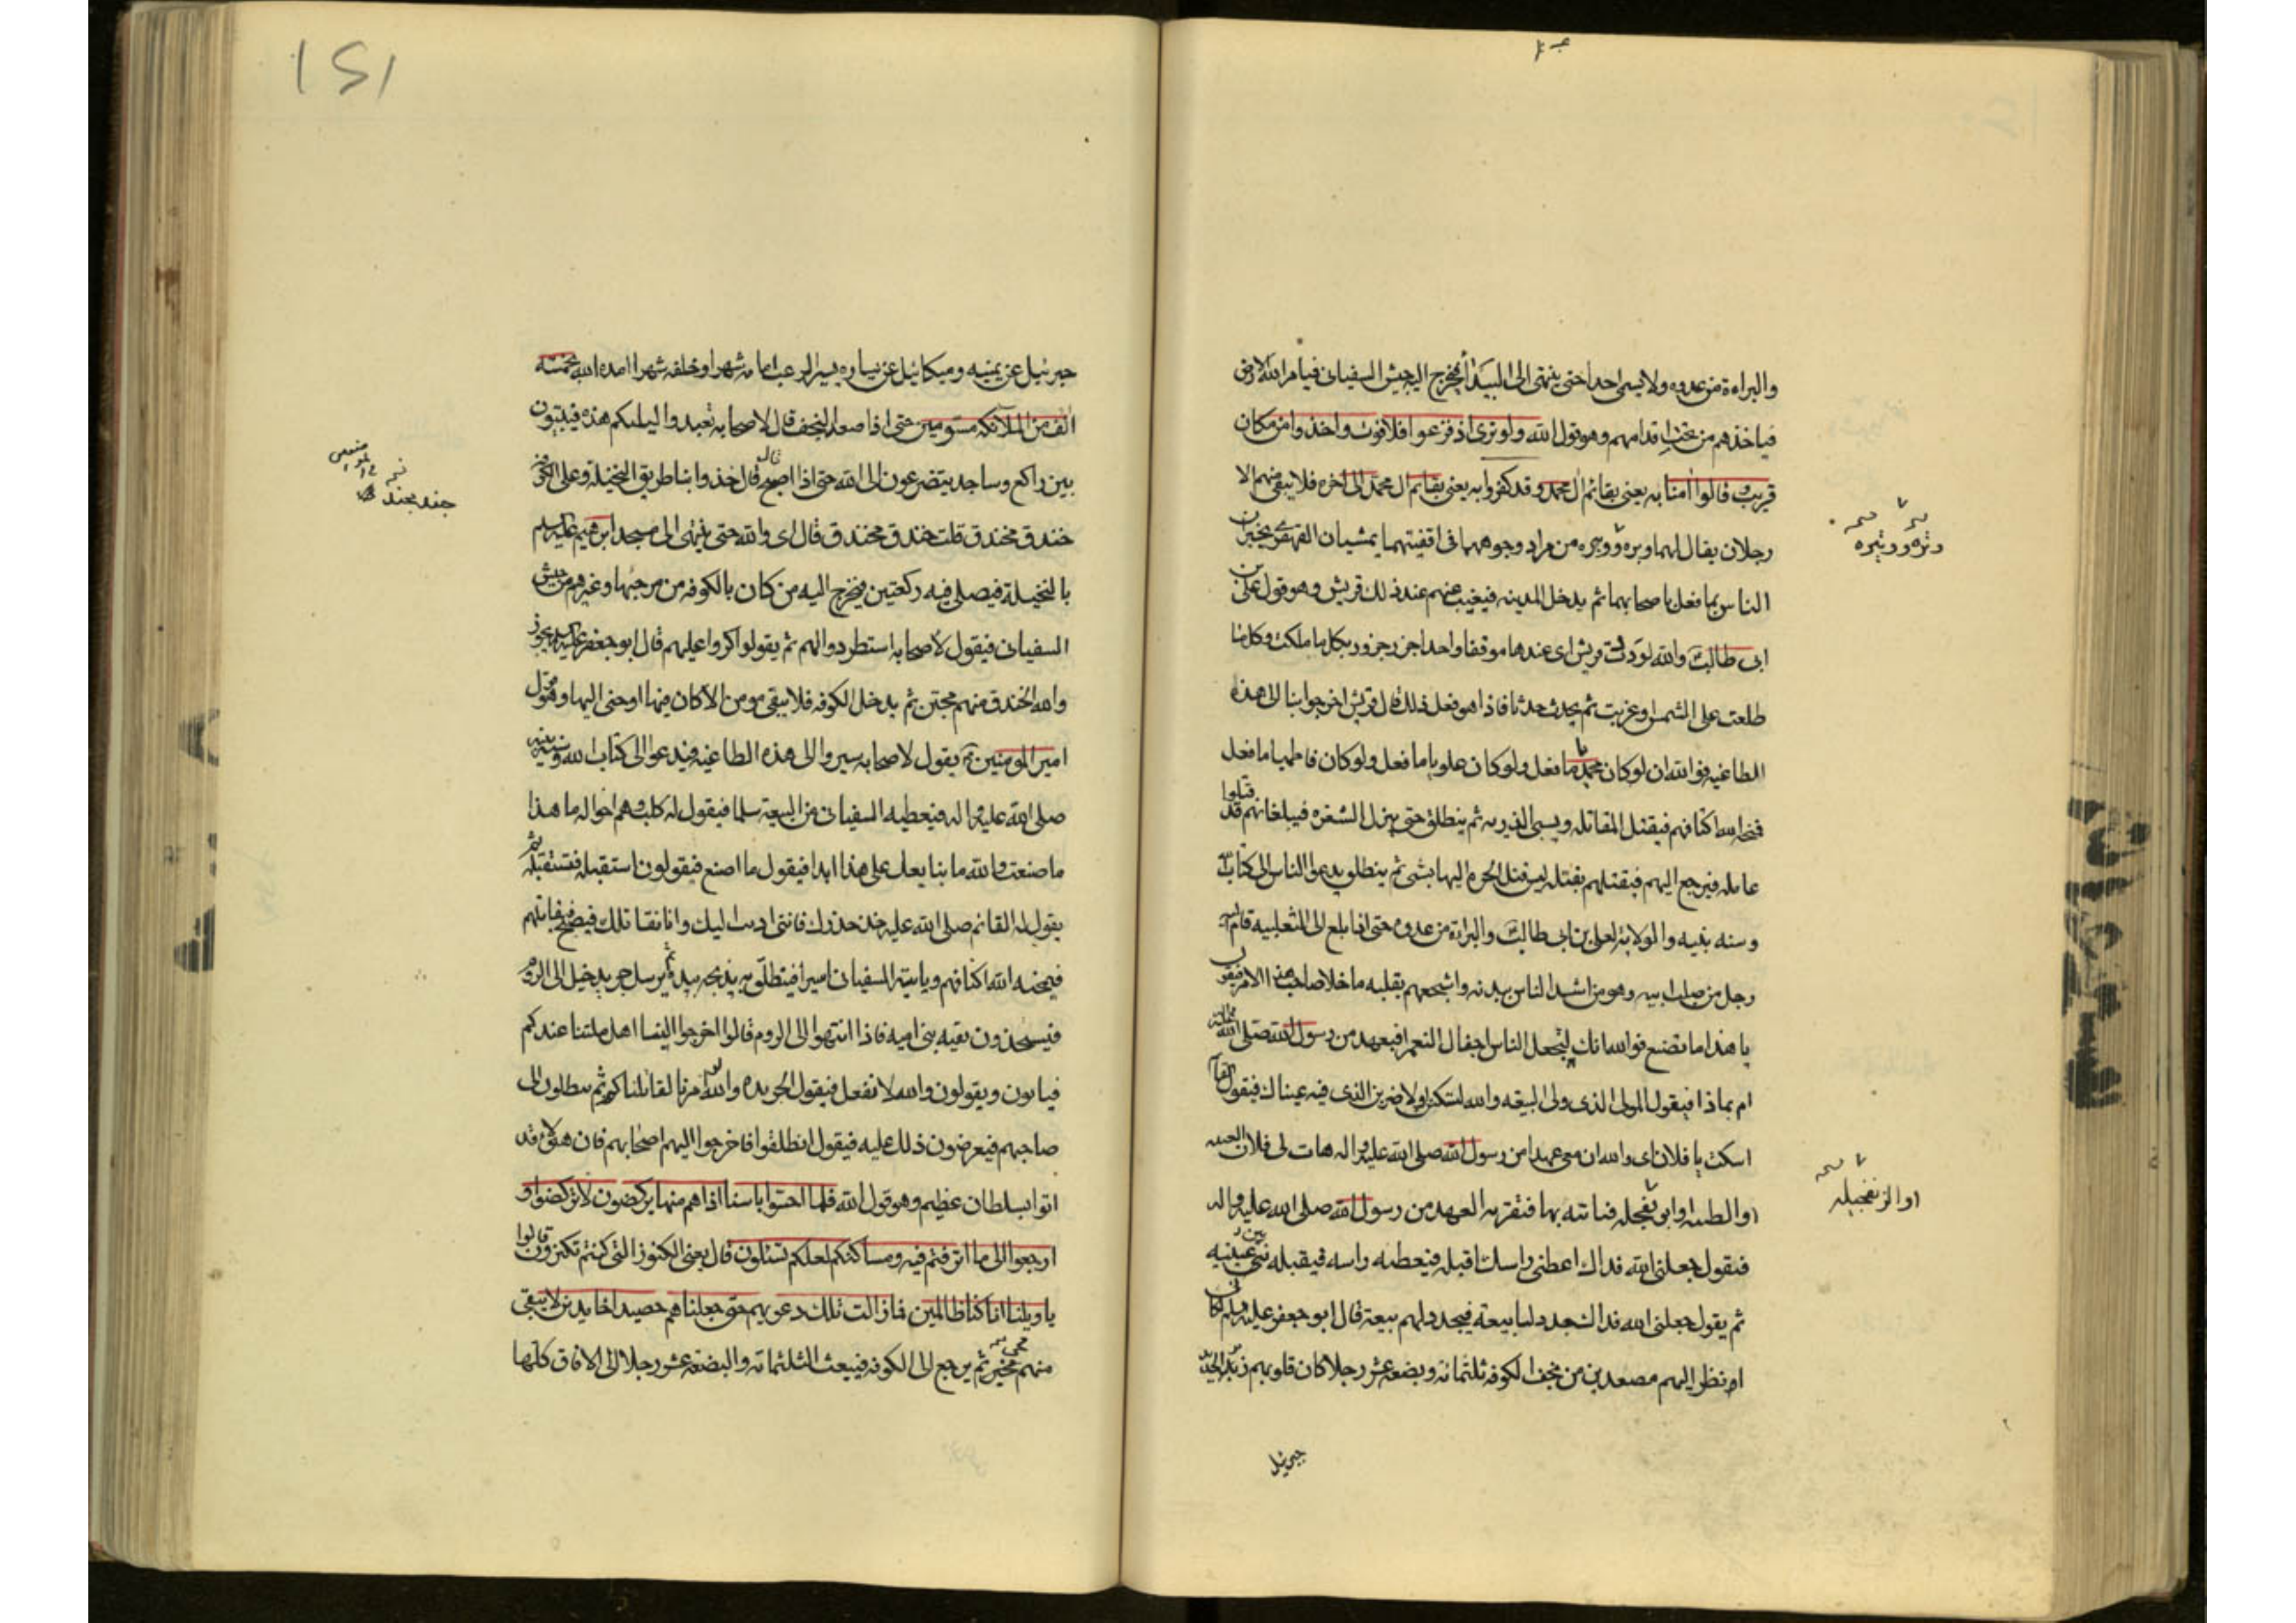 والبراءة من عدوه ولا يسمى احدا حتى ينتهى الى البيداء فيخرج اليه جيش السفيانى فيامر الله الارض
فياخذهم من تحت اقدامهم وهو قول الله ولو ترى اذ فزعوا فلا فوت واخذوا من مكان
قريب وقالوا امنا به يعنى بقائم ال محمد وقد كفروا به يعنى بقائم ال محمد الى اخره فلا يبقى منهم الا
رجلان يقال لهما وبره ووبيره من مراد وجوههما فى اقفيتهما يمشيان القهقرى يخبران
وتره ووتيره
الناس بما فعل باصحابهما ثم يدخل المدينه فيغيب عنهم عند ذلك قريش وهو قول على بن
ابى طالب والله لودت قريش اى عندها موقفا واحدا جزر جزور بكل ما ملكت وكل ما
طلعت على الشمس او غربت ثم يحدث حدثا فاذا هو فعل ذلك قال قريش اخرجوا بنا الى هذه
الطاغيه فوالله ان لو كان محمديا ما فعل ولو كان علويا ما فعل ولو كان فاطميا ما فعل
فيمنحه الله اكتافهم فيقتل المقاتله ويسبى الذريه ثم ينطلق حتى ينزل الشقره فيبلغه انهم قد قتلوا
عامله فيرجع اليهم فيقتلهم مقتله ليس قتل الحره اليها بشئ ثم ينطلق يدعوا الناس الى كتاب الله
وسنه نبيه والولايه لعلى بن ابى طالب والبراءة من عدوه حتى اذا بلغ الى الثعلبيه قام اليه
رجل من صلب ابيه وهو من اشد الناس ببدنه واشجعهم بقلبه ما خلا صاحب هذا الامر فيقول
يا هذا ما تصنع فوالله انك لتجفل الناس اجفال النعم افبعهد من رسول الله صلى الله عليه
ام بماذا فيقول المولى الذى ولى البيعه والله لتسكتن او لاضربن الذى فيه عيناك فيقول القائم
اسكت يا فلان اى والله ان معى عهدا من رسول الله صلى الله عليه واله هات لى فلان العيبه
او الطيبه او ابو نفجله فياتيه بها فيقريه العهد من رسول الله صلى الله عليه واله
او الزنفجيله
فيقول جعلنى الله فداك اعطنى راسك اقبله فيعطيه راسه فيقبله بين عينيه
ثم يقول جعلنى الله فداك جدد لنا بيعه فيجدد لهم بيعة قال ابو جعفر عليه السلم لكانى
انظر اليهم مصعدين من نجف الكوفه ثلثمائه وبضعه عشر رجلا كان قلوبهم زبر الحديد
جبرئيل
151
جبرئيل عن يمينه وميكائيل عن يساره يسير الرعب امامه شهرا وخلفه شهرا امده الله بخمسه
الف من الملائكه مسومين حتى اذا صعد النجف قال لاصحابه تعبدوا ليلتكم هذه فيبيتون
بين راكع وساجد يتضرعون الى الله حتى اذا اصبح قال خذوا بنا طريق النخيلة وعلى الكوفه
جند مجند
خندق مخندق قلت خندق مخندق قال اى والله حتى ينتهى الى مسجد ابرهيم عليه السلم
بالنخيلة فيصلى فيه ركعتين فيخرج اليه من كان بالكوفه من مرجئها وغيرهم من جيش
السفيانى فيقول لاصحابه استطردوا لهم ثم يقول كروا عليهم قال ابو جعفر عليه السلم لا يجوز
والله الخندق منهم مخبر ثم يدخل الكوفه فلا يبقى مومن الا كان فيها او حن اليها وهو قول
امير المومنين ثم يقول لاصحابه سيروا الى هذه الطاغيه فيدعوا الى كتاب الله وسنه نبيه
صلى الله عليه واله فيعطيه السفيانى من البيعه سلما فيقول له كلب وهم اخواله ما هذا
ما صنعت والله ما نبايعك على هذا ابدا فيقول ما اصنع فيقولون استقبله فيستقبله ثم
يقول له القائم صلى الله عليه خذ حذرك فاننى اديت اليك وانا نقاتلك فيصبح فيقاتلهم
فيمنحه الله اكتافهم وياسر السفيانى اسيرا فينطلق به يذبحه بيده ثم يرسل جريدة خيل الى الروم
فيستحذون بقيه بنى اميه فاذا انتهوا الى الروم قالوا اخرجوا الينا اهل ملتنا عندكم
فيابون ويقولون والله لا نفعل فيقول الجريده والله لو امرنا لقاتلناكم ثم ينطلقون الى
صاحبهم فيعرضون ذلك عليه فيقول انطلقوا فاخرجوا اليهم اصحابهم فان هولاء قد
اتوا بسلطان عظيم وهو قول الله فلما احسوا باسنا اذا هم منها يركضون لا تركضوا و
ارجعوا الى ما اترفتم فيه ومساكنكم لعلكم تسئلون قال يعنى الكنوز التى كنتم تكنزون قالوا
يا ويلنا انا كنا ظالمين فما زالت تلك دعويهم حتى جعلناهم حصيدا خامدين لا يبقى
منهم مخبر ثم يرجع الى الكوفه فيبعث الثلثمائه والبضعه عشر رجلا الى الافاق كلها